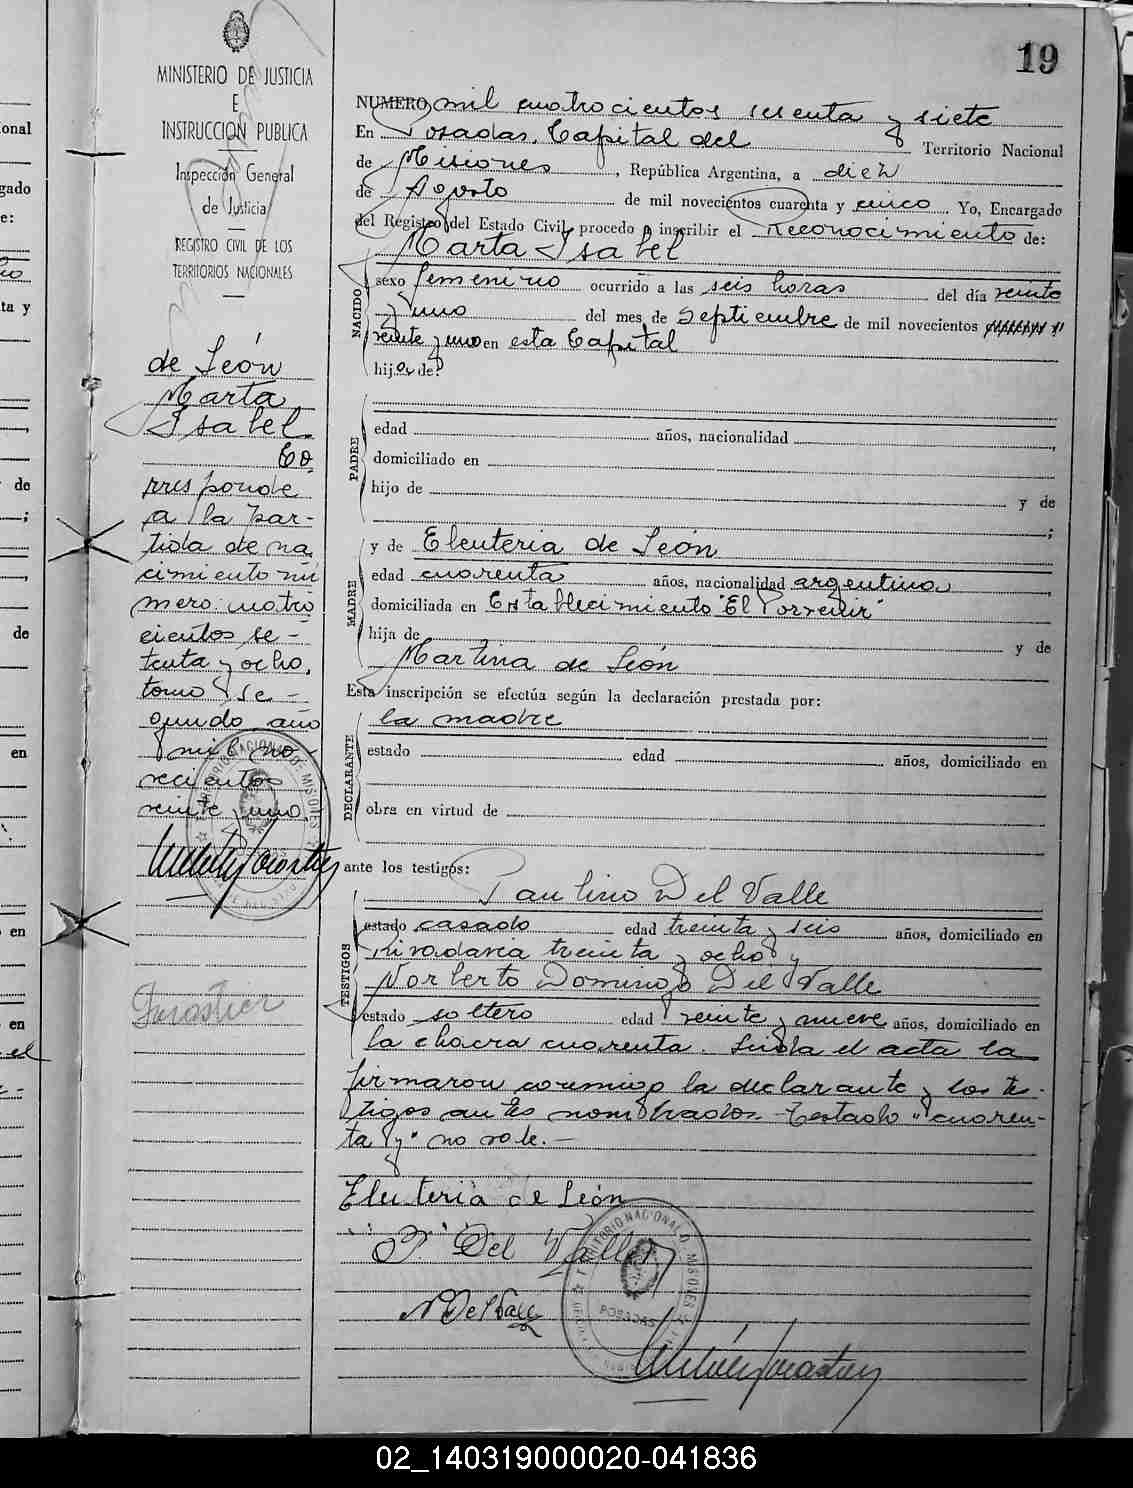 19
MINISTERIO DE JUSTICIA
E
INSTRUCCION PUBLICA
Inspección General
de Justicia
REGISTRO CIVIL DE LOS
TERRITORIOS NACIONALES
de León
Marta
Isabel
Co
rresponde
a la par-
tida de na
cimiento nú
mero cuatro
cientos se-
tenta y ocho,
tomo se-
gundo año
mil no
vecientos
veinte y uno.
NUMERO mil cuatrocientos sesenta y siete
En Posadas, Capital del Territorio Nacional
de Misiones, República Argentina, a diez
de Agosto de mil novecientos cuarenta y cinco. Yo, Encargado
del Registro del Estado Civil, procedo a inscribir el Reconocimiento de:
Marta Isabel
NACIDO
sexo femenino ocurrido a las seis horas del día veinte
y uno del mes de Septiembre de mil novecientos
veinte y uno en esta Capital
hija de:
PADRE
edad años, nacionalidad ,
domiciliado en
hijo de y de
;
MADRE
y de Eleuteria de León
edad cuarenta años, nacionalidad argentina,
domiciliada en Establecimiento "El Porvenir"
hija de y de
Martina de León
Esta inscripción se efectúa según la declaración prestada por:
DECLARANTE
la madre
estado edad años, domiciliado en
obra en virtud de
ante los testigos:
TESTIGOS
Paulino Del Valle
estado casado edad treinta y seis años, domiciliado en
Rivadavia treinta y ocho y
Norberto Domingo Del Valle
estado soltero edad veinte y nueve años, domiciliado en
la chacra cuarenta. Leída el acta la
firmaron conmigo la declarante y los tes-
tigos antes nombrados. Testado "cuaren-
ta y" no vale.-
Eleuteria de León
P. Del Valle
N Del Valle
POSADAS
02_140319000020-041836